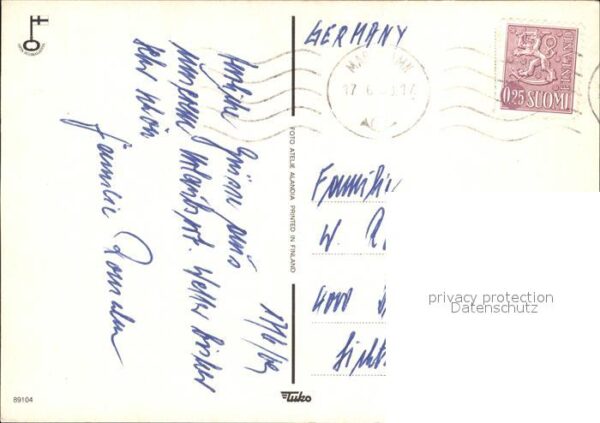 GERMANY
MARIEHAMN
17.6.
0,25 SUOMI
FINLAND
Herzliche Grüsse aus
unserem Urlaubsort. Wetter bisher
sehr schön
Familie
17/6/69
FOTO ATELJE ALANDIA PRINTED IN FINLAND
Familie
W. R
4000
privacy protection
Datenschutz
89104
Tuko